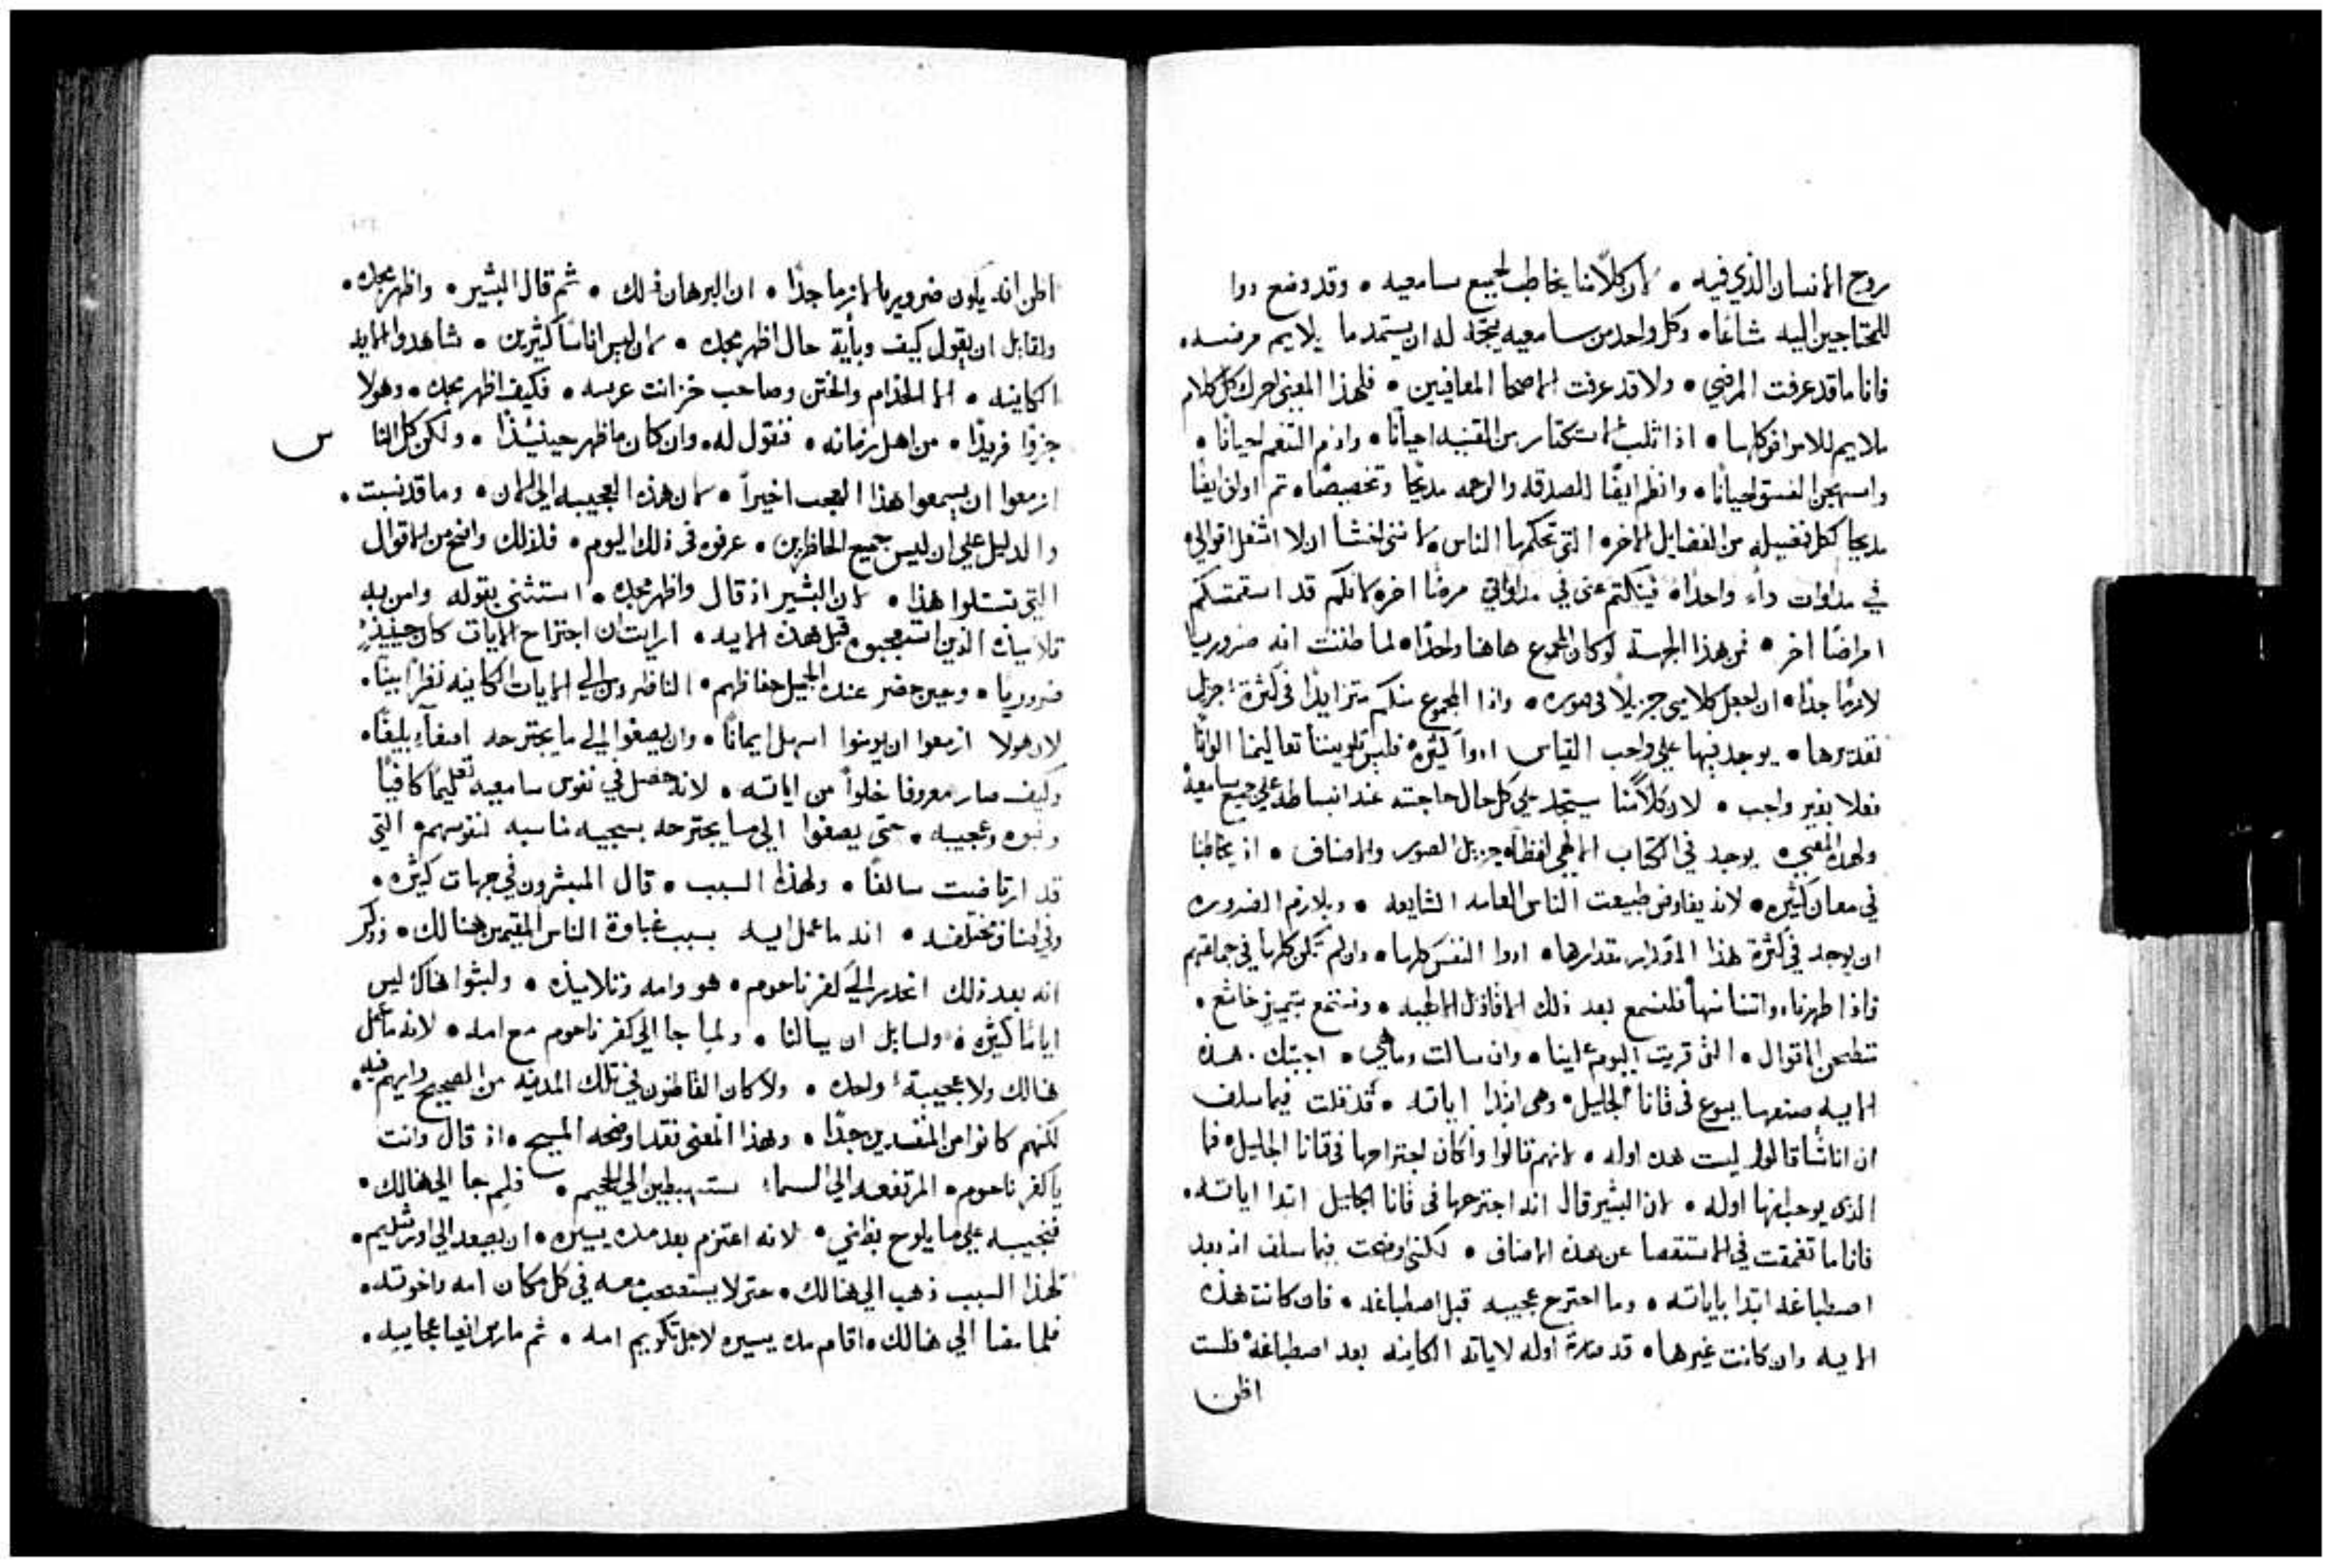 روح الانسان الذي فيه • لان كلامنا يخاطب لجميع سامعيه • وقد وضع دوا
للمحتاجين اليه شائعًا • وكل واحد من سامعيه يتجه له ان يستمد ما يلايم مرضه •
فانا ما قد عرفت المرضي • ولا قد عرفت الاصحا المعافيين • فلهذا المعنى احرك كل كلام
ملايم للامراض كلها • اذا ثلب الاستكثار من القنيه احيانًا • واذم التنعم احيانًا •
واستهجن الفسق احيانًا • وانظم ايضًا للصدقه والرحمه مديحًا وتخصيصًا • ثم اولف ايضًا
مديحا لكل فضيله من الفضايل الاخره التي تحكم بها الناس • لانني اخشا ان لا اشغل اقوالي
في مداوات داء واحدًا • فينكتم عني في مداواتي مرضًا اخر • لانكم قد اسقمتكم
امراضًا اخر • فمن هذا الجهة لو كان المجموع هاهنا واحدًا • لما ظننت انه ضروريا
لازمًا جدًا • ان اجعل كلامي جزيلاً في صوره • واذا المجموع منكم متزايدًا في كثرة جزيل
تقديرها • يوجد فيها علي واجب القياس ادواً كثيره فليس تلويننا تعاليمنا الوانًا
فعلا بغير واجب • لان كلامنا سيتجد علي كل حال حاجته عند انبساطه علي جميع سامعيه
ولهذا المعني • يوجد في الكتاب الالهي لفظًا • جزيل الصور والاصناف • اذ يخاطبنا
في معان كثيره • لانه يفاوض طبيعت الناس العامه الشايعه • ويلازم الضروره
ان يوجد في كثرة هذا المقدار مقدارها • ادوا النفس كلها • وان لم تكن كلها في جماعتهم
فاذا طهرنا ذواتنا منها فلنسمع بعد ذلك الاقاويل الالهيه • ونستمع بتمييز خاشع •
تنطحن الاقوال • التي قريت اليوم علينا • وان سالت وما هي • اجبتك • هذه
الايه صنعها يسوع في قانا الجليل • وهي ابتدا اياته • قد قلت فيما سلف
ان اناسًا قالوا ليست هذه اوله • لانهم قالوا وان كان اجتراحها في قانا الجليل • فما
الذي يوجب انها اوله • لان البشير قال انه اجترحها في قانا الجليل ابتدا اياته •
فانا ما تعمقت في الاستقصا عن هذه الاصناف • لكنني اوضحت فيما سلف انه بعد
اصطباغه ابتدا باياته • وما اجترح عجيبه قبل اصطباغه • فان كانت هذه
الايه وان كانت غيرها • قد صارت اوله لاياته الكاينه بعد اصطباغه • فلست
اظن
اظن انه يكون ضروريا لازما جدًا • ان البرهان ذلك • ثم قال البشير • واظهر مجده •
ولقايل ان يقول كيف وبأية حال اظهر مجده • لان ليس اناسًا كثيرين • شاهدوا الايه
الكاينه • الا الخدام والختن وصاحب خزانت عرسه • فكيف اظهر مجده • وهولا
جزوا فريدًا • من اهل زمانه • فنقول له • وان كان ما ظهر حينئذًا • ولكن كل النا س
ازمعوا ان يسمعوا هذا العجب اخيراً • لان هذه العجيبه الي الان • وما قد نسيت •
والدليل علي ان ليس جميع الحاظرين • عرفوه في ذلك اليوم • فذلك واضح من الاقوال
التي تستلوا هذا • لان البشير اذ قال واظهر مجده • استثنى بقوله وامن به
تلاميذه الذين استعجبوه قبل هذه الايه • ارايت ان اجتراح الايات كان حينيذٍ
ضروريا • وحين حضر عنده الجميل حفاظهم • الناظرون الي الايات الكاينه نظراً بينًا •
لان هولا ازمعوا ان يومنوا اسهل ايمانًا • وان يصغوا الي ما يجترحه اصغاءً بليغًا •
وكيف صار معروفا خلواً من اياته • لانه حصل في نفوس سامعيه تعليمًا كافيًا
ونبوه وعجيبه • حتى يصغوا الي ما يجترحه بسجيه مناسبه لنفوسهم • التي
قد ارتاضت سالفًا • ولهذا السبب • قال المبشرون في جهات كثيره •
وفي اصناف مختلفه • انه ما عمل ايه بسبب غباوة الناس المقيمين هنالك • وذكر
انه بعد ذلك انحدر الي كفرناحوم • هو وامه وتلاميذه • ولبثوا هناك ليس
ايامًا كثيره • ولسايل ان يسالنا • ولما جا الي كفرناحوم مع امه • لانه ما عمل
هنالك ولا عجيبة واحده • ولا كان القاطنون في تلك المدينه من الصحيح رايهم فيه •
لكنهم كانوا من المفسدين جدًا • ولهذا المعنى فقد اوضحه المسيح • اذ قال وانت
يا كفرناحوم • المرتفعه الي السماء ستهبطين الي الجحيم • فلم جا الي هنالك •
فنجيبه علي ما يلوح بظني • لانه اعتزم بعد مده يسيره • ان يصعد الي اورشليم •
فلهذا السبب ذهب الي هنالك • حتى لا يستصحب معه في كل مكان امه واخوته •
فلما مضا الي هنالك • اقام مده يسيره لاجل تكريم امه • ثم مارس ايضا عجايبه •